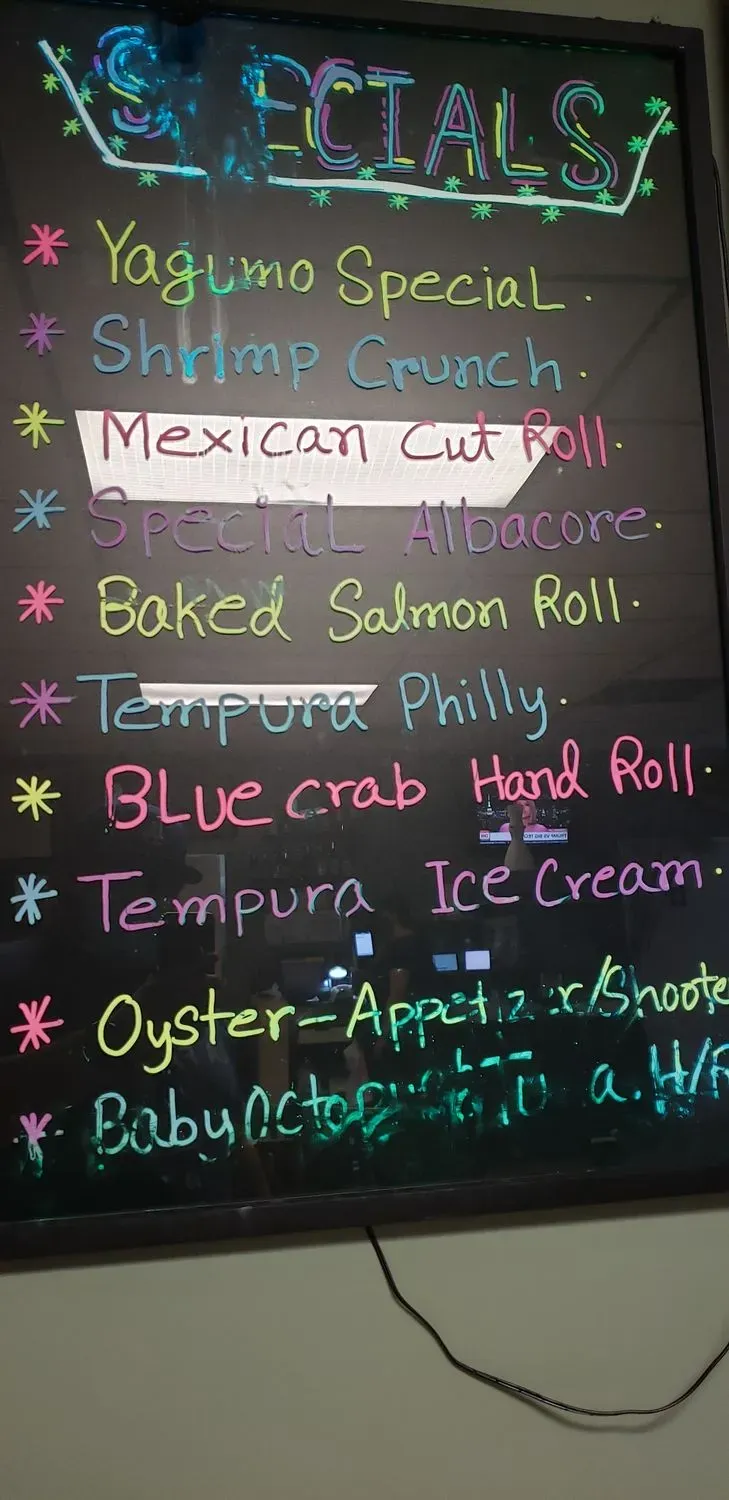 SPECIALS
Yagumo Special.
Shrimp Crunch.
Mexican Cut Roll.
Special Albacore.
Baked Salmon Roll.
Tempura Philly.
Blue crab Hand Roll.
Tempura Ice Cream.
Oyster-Appetizer/Shoote
Baby Octop